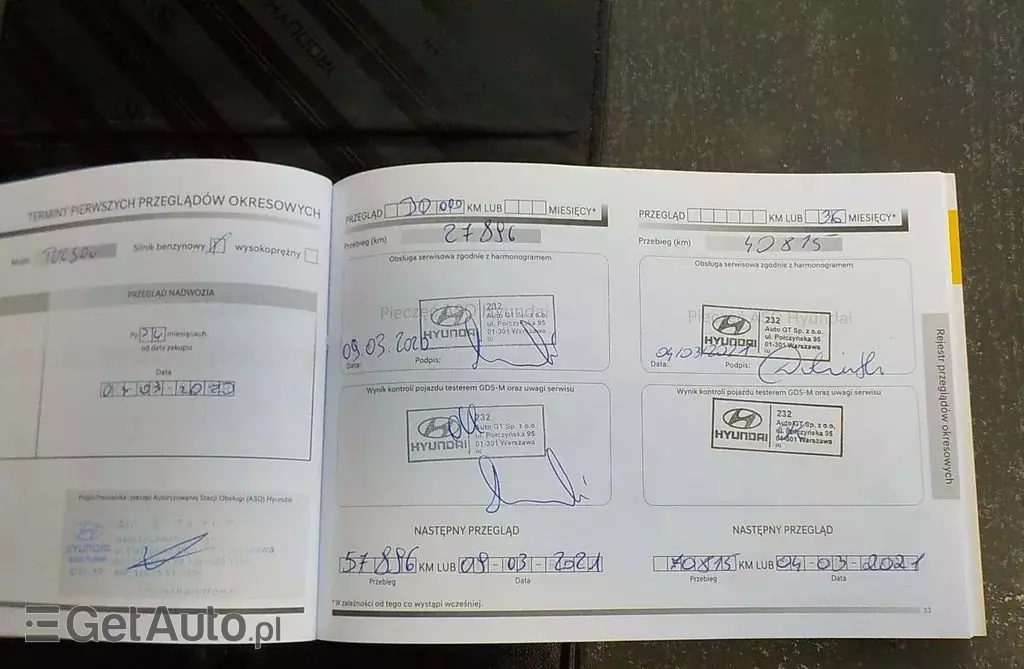 HYUNDAI
TERMINY PIERWSZYCH PRZEGLĄDÓW OKRESOWYCH
Model TUCSON Silnik benzynowy wysokoprężny
PRZEGLĄD NADWOZIA
Po 24 miesiącach
od daty zakupu
Data
04-03-2020
HYUNDAI
PRZEGLĄD 30 000 KM LUB MIESIĘCY*
Przebieg (km) 27896
Obsługa serwisowa zgodnie z harmonogramem
Pieczęć ASO Hyundai
HYUNDAI
232
Auto GT Sp. z o.o.
ul. Połczyńska 95
01-301 Warszawa
09.03.2020
Data: Podpis:
Wynik kontroli pojazdu testerem GDS-M oraz uwagi serwisu
HYUNDAI
232
Auto GT Sp. z o.o.
ul. Połczyńska 95
01-301 Warszawa
NASTĘPNY PRZEGLĄD
57896 KM LUB 09-03-2021
Przebieg Data
*W zależności od tego co wystąpi wcześniej.
PRZEGLĄD KM LUB 36 MIESIĘCY*
Przebieg (km) 40815
Obsługa serwisowa zgodnie z harmonogramem
Pieczęć ASO Hyundai
HYUNDAI
232
Auto GT Sp. z o.o.
ul. Połczyńska 95
01-301 Warszawa
04/03/2021
Data: Podpis:
Wynik kontroli pojazdu testerem GDS-M oraz uwagi serwisu
HYUNDAI
232
Auto GT Sp. z o.o.
ul. Połczyńska 95
01-301 Warszawa
NASTĘPNY PRZEGLĄD
70815 KM LUB 04-03-2021
Przebieg Data
33
Rejestr przeglądów okresowych
GetAuto.pl